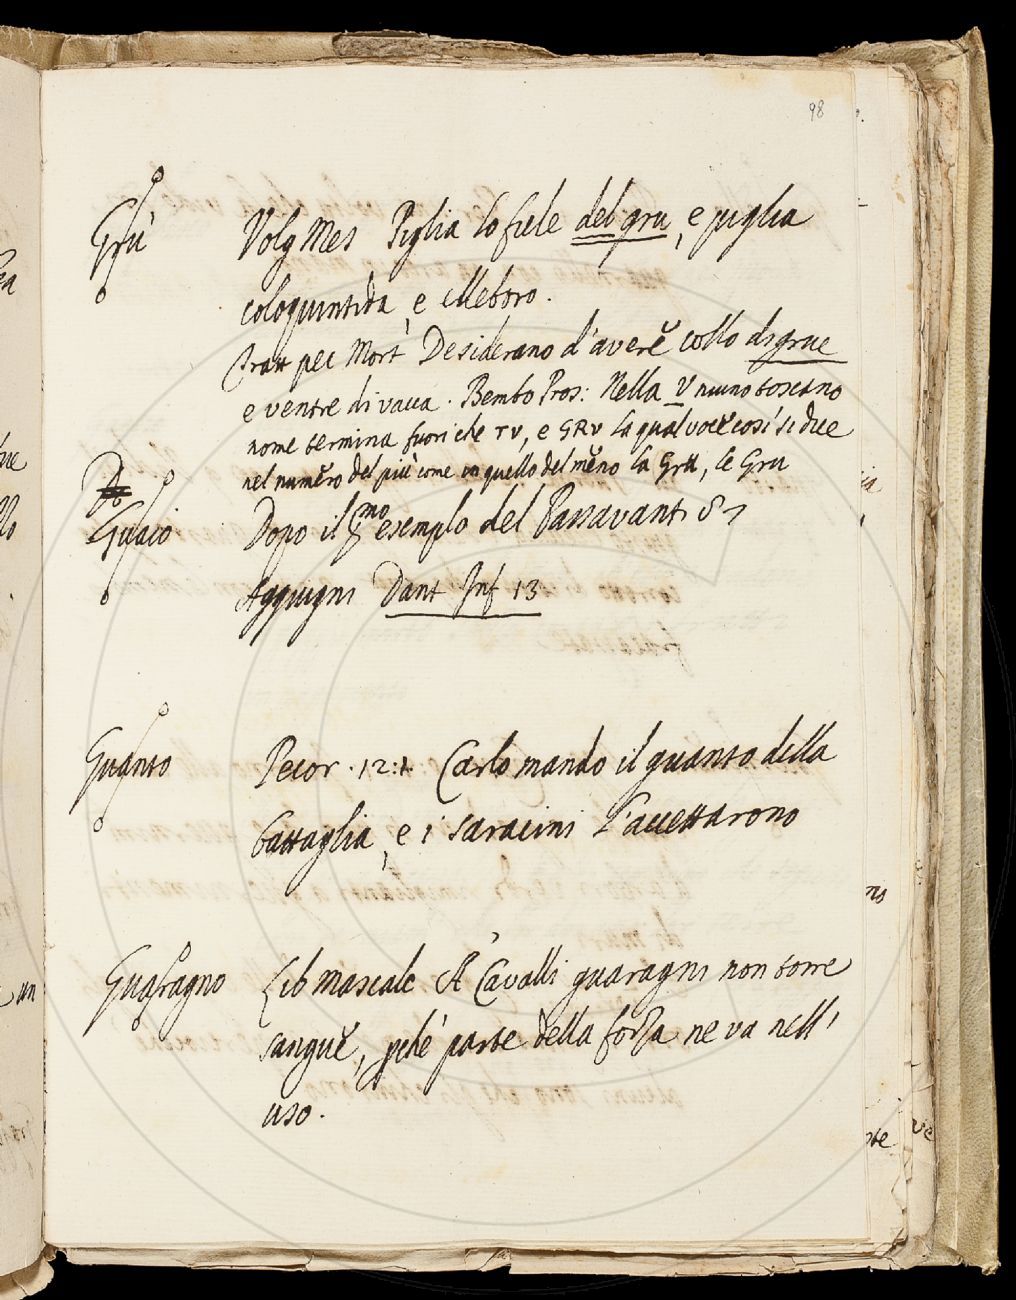 98
Grù Volg Mes Piglia lo fiele del gru, e piglia
coloquintida, e elleboro.
Tratt pec Mort Desiderano d'avere collo di grue
e ventre di vacca. Bembo Pros: Nella V niuno toscano
nome termina fuori che TV, e GRV la qual voce così si dice
nel numero del più come in quello del meno la Gru, le Gru
Guaio Dopo il esemplo del Passavanti 81
Aggiugni Dant Inf 13
Guanto Pecor. 12:1 Carlo mando il guanto della
battaglia, e i saracini l'accettarono
Guaragno Lib mascalc A Cavalli guaragni non torre
sangue, pchè parte della forza ne va nell'
uso.